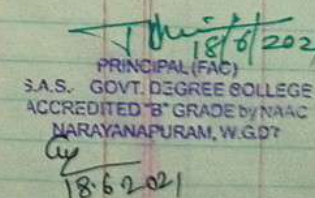 18/6/202
PRINCIPAL (FAC)
S.A.S. GOVT. DEGREE COLLEGE
ACCREDITED "B" GRADE by NAAC
NARAYANAPURAM, W.G.DT
18.6.2021